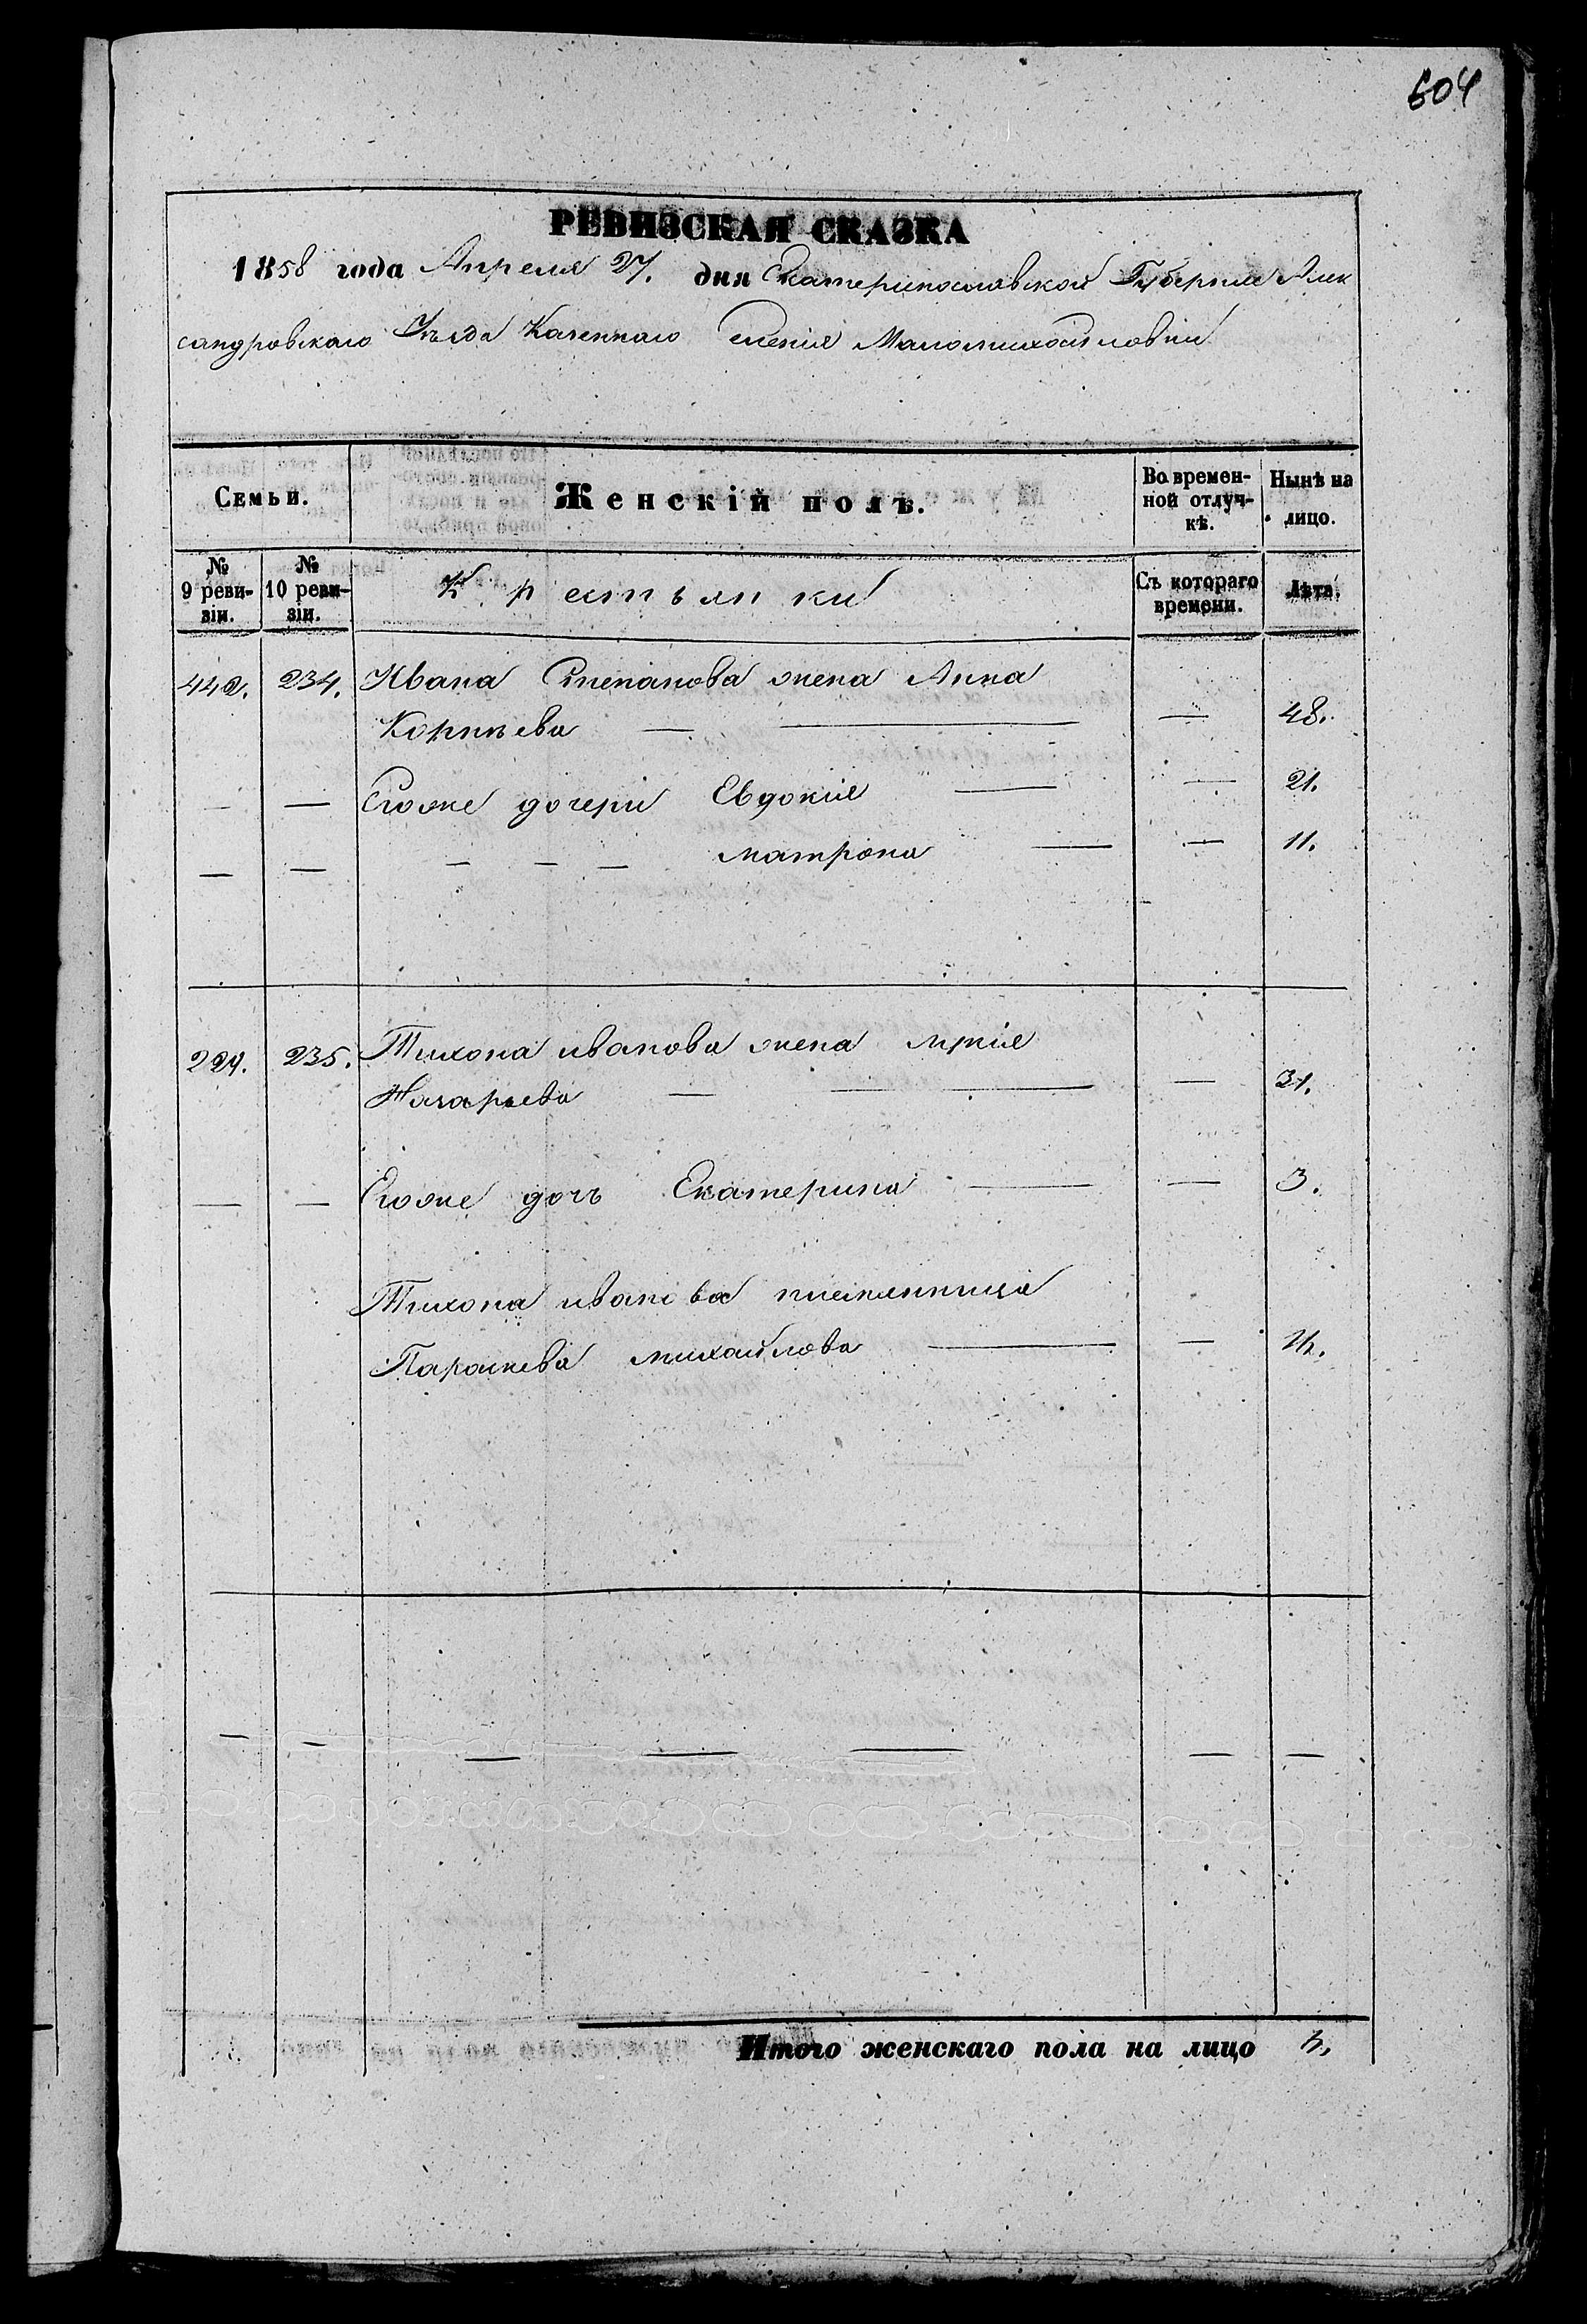 604
РЕВИЗСКАЯ СКАЗКА
1858 года Апреля 27. дня Екатеринославской Губерніи Алек
сандровскаго Уѣзда Казеннаго селенія Маломихайловки
Семьи.
Женскій полъ.
Во времен-
ной отлуч-
кѣ.
Нынѣ на
лицо.
№
9 реви-
зіи.
№
10 реви-
зіи.
Крестьянки
Съ котораго
времени.
Лѣта.
442. 234. Ивана Степанова жена Анна
Корнѣева — — — 48.
— — Егоже дочери Евдокія — — 21.
— — — — — Матрона — — 11.
229. 235. Тихона иванова жена
Назарьева — — — — 31.
— — Егоже дочь Екатерина — — 3.
Тихона иванова племянница
Параскева михайлова — —
— — — — — — —
Итого женскаго пола на лицо